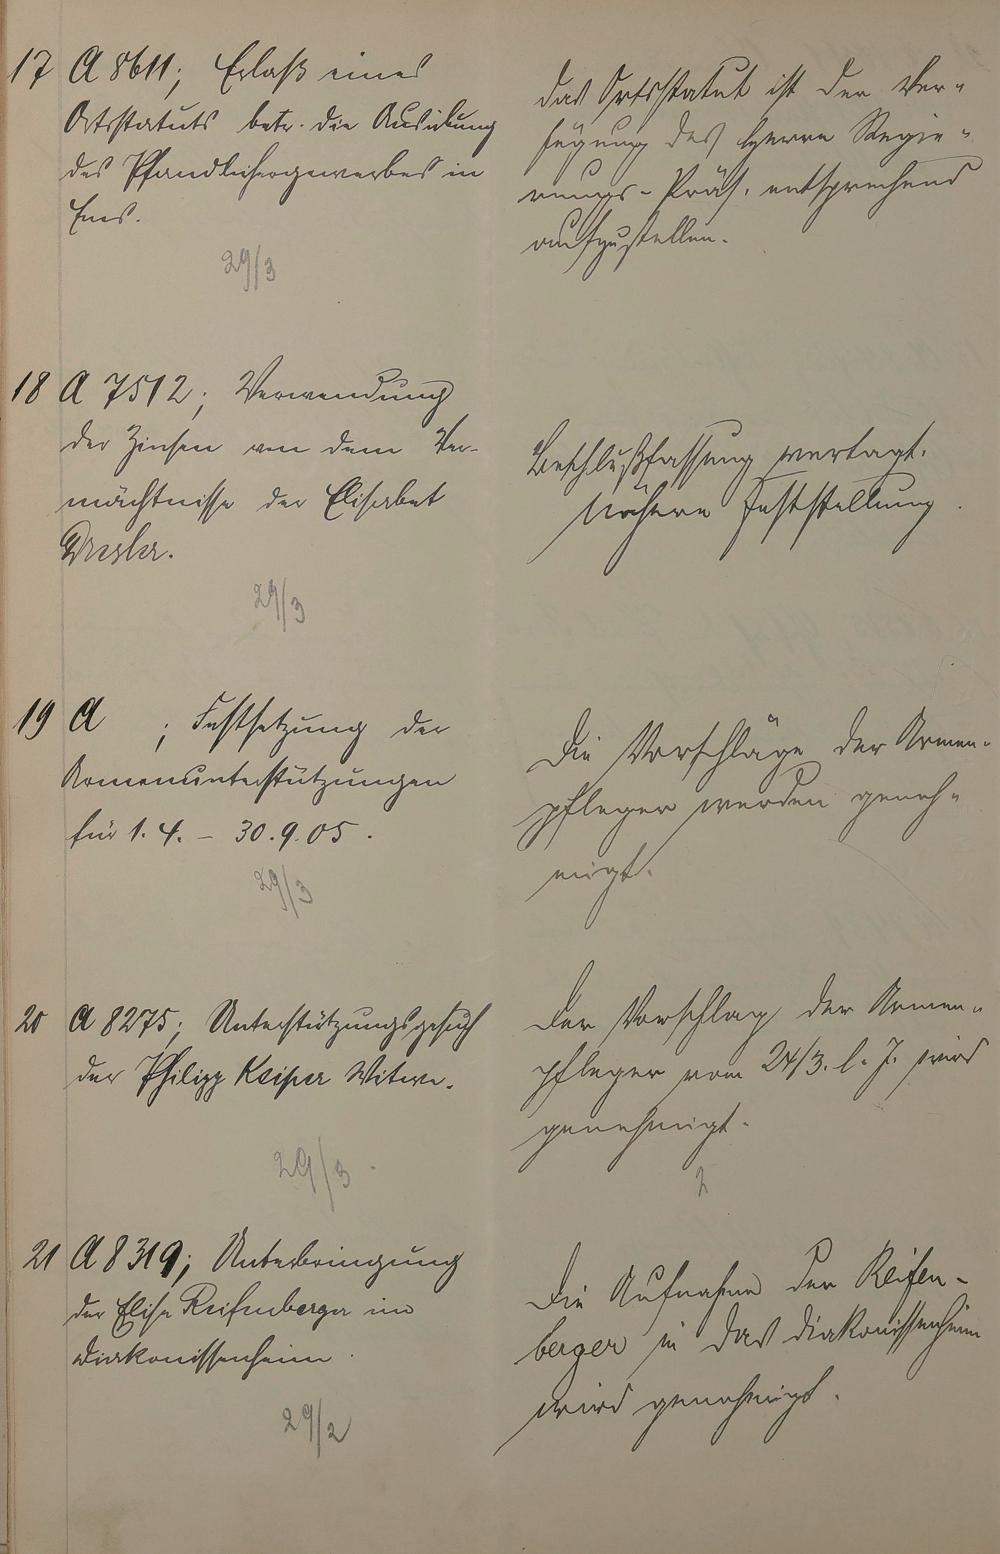 17 A 8611; Erlaß eines
Ortsstatuts betr. die Ausübung
des Pfandleihergewerbes in
Ems.
29/3
das Ortsstatut ist der Ver-
fügung des Herrn Regie-
rungs-Präs. entsprechend
aufzustellen.
18 A 7512; Verwendung
der Zinsen von dem Ver-
mächtnisse der Elisabet
29/3
Beschlußfassung vertagt.
Nähere Feststellung
19 A ; Festsetzung der
Armenunterstützungen
für 1. 4. - 30. 9. 05.
29/3
Die Vorschläge der Armen-
pfleger werden geneh-
migt.
20 A 8275; Unterstützungsgesuch
der Philipp Keiper Witwe.
29/3
Der Vorschlag der Armen-
pfleger vom 24/3. l. J. wird
genehmigt.
21 A 8319; Unterbringung
der Elise Reifenberger im
Diakonissenheim
29/2
Die Aufnahme der Reifen-
berger in das Diakonissenheim
wird genehmigt.